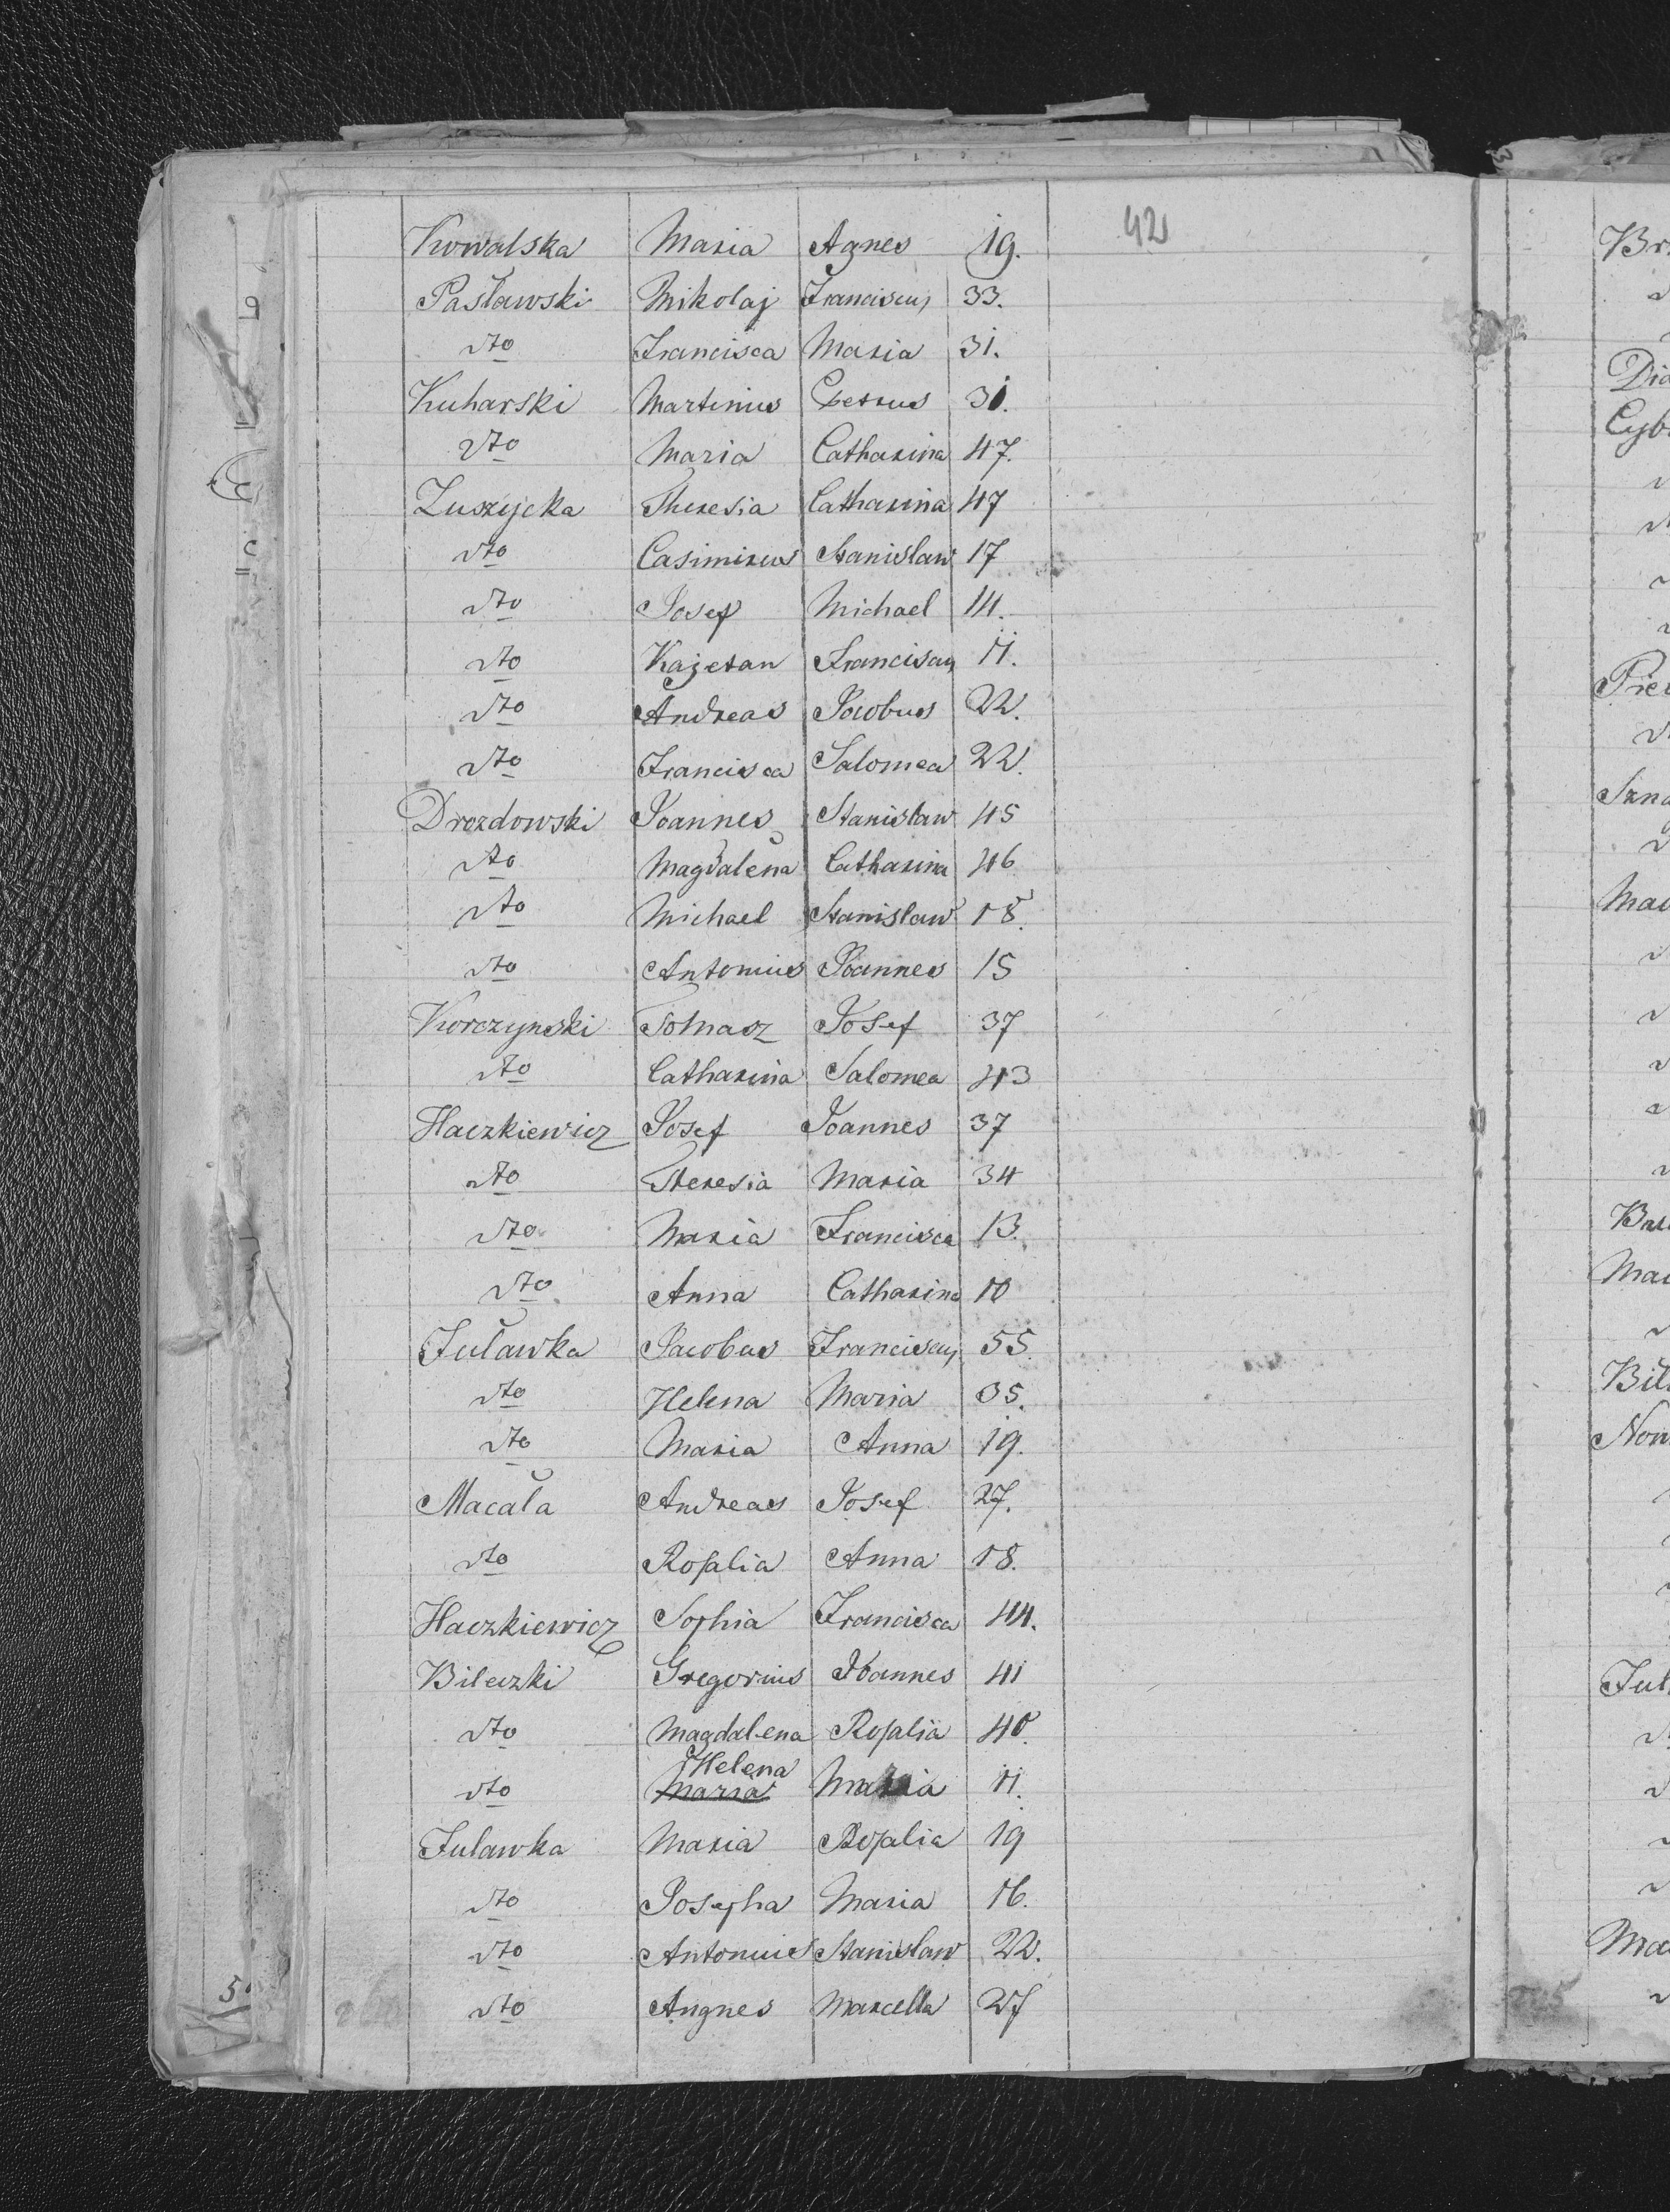 42
Kowalska Maria Agnes 19.
Pasławski Mikolaj Franciscus 33.
dto Francisca Maria 31.
Kuharski Martinus Petrus 31.
dto Maria Catharina 47.
Zuszycka Theresia Catharina 47
dto Casimirus Stanislaw 17
dto Josef Michael 14.
dto Kajetan Franciscus 11.
dto Andreas Jacobus 22.
dto Francisca Salomea 22.
Drozdowski Joannes Stanislaw 45
dto Magdalena Catharina 46
dto Michael Stanislaw 18.
dto Antonius Joannes 15
Korczynski Tomasz Josef 37
dto Catharina Salomea 43
Haczkiewicz Josef Joannes 37
dto Theresia Maria 34
dto Maria Francisca 13.
dto Anna Catharina 10
Juławka Jacobus Franciscus 55.
dto Helena Maria 35.
dto Maria Anna 19.
Macała Andreas Josef 27.
dto Rosalia Anna 18.
Haczkiewicz Sophia Francisca 44.
Bileczki Gregorius Joannes 41
dto Magdalena Rosalia 40.
Helena
dto Maria Maria 11.
Julawka Maria Rosalia 19
dto Josepha Maria 16.
dto Antonius Stanislaw 22.
dto Angnes Marcella 27